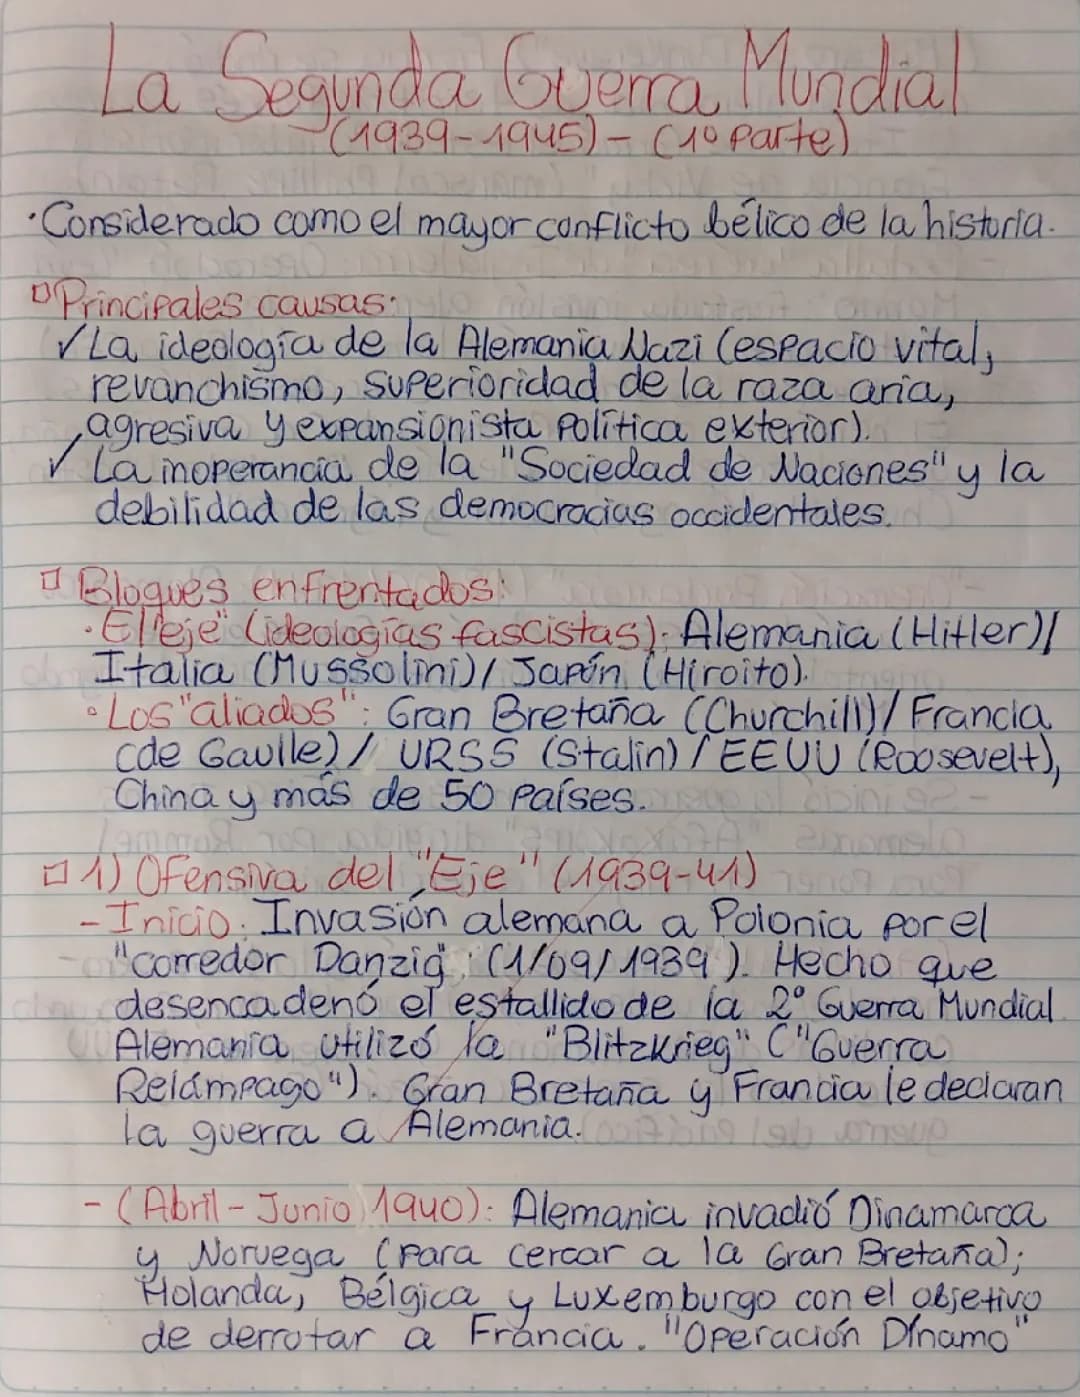 La Segunda Guerra Mundial
(1939-1945) - (1º Parte)
·Considerado como el mayor conflicto bélico de la historia.
Principales causas:
✓ La ideología de la Alemania Nazi (espacio vital,
revanchismo, superioridad de la raza aria,
agresiva y expansionista política exterior).
✓ La inoperancia de la "Sociedad de Naciones" y la
debilidad de las democracias occidentales.
Bloques enfrentados:
·El "eje" (ideologías fascistas): Alemania (Hitler)/
Italia (Mussolini)/ Japón (Hiroito).
·Los "aliados": Gran Bretaña (Churchill)/ Francia
(de Gaulle)/ URSS (Stalin)/ EEUU (Roosevelt),
China y más de 50 países.
1) Ofensiva del "Eje" (1939-41)
-Inicio: Invasión alemana a Polonia por el
"corredor Danzig"; (1/09/1939). Hecho que
desencadenó el estallido de la 2º Guerra Mundial
Alemania utilizó la "Blitzkrieg" ("Guerra
Relámpago"). Gran Bretaña y Francia le declaran
la guerra a Alemania.
- (Abril - Junio 1940): Alemania invadió Dinamarca
y Noruega (para cercar a la Gran Bretaña);
Holanda, Bélgica y Luxemburgo con el objetivo
de derrotar a Francia. "Operación Dínamo"